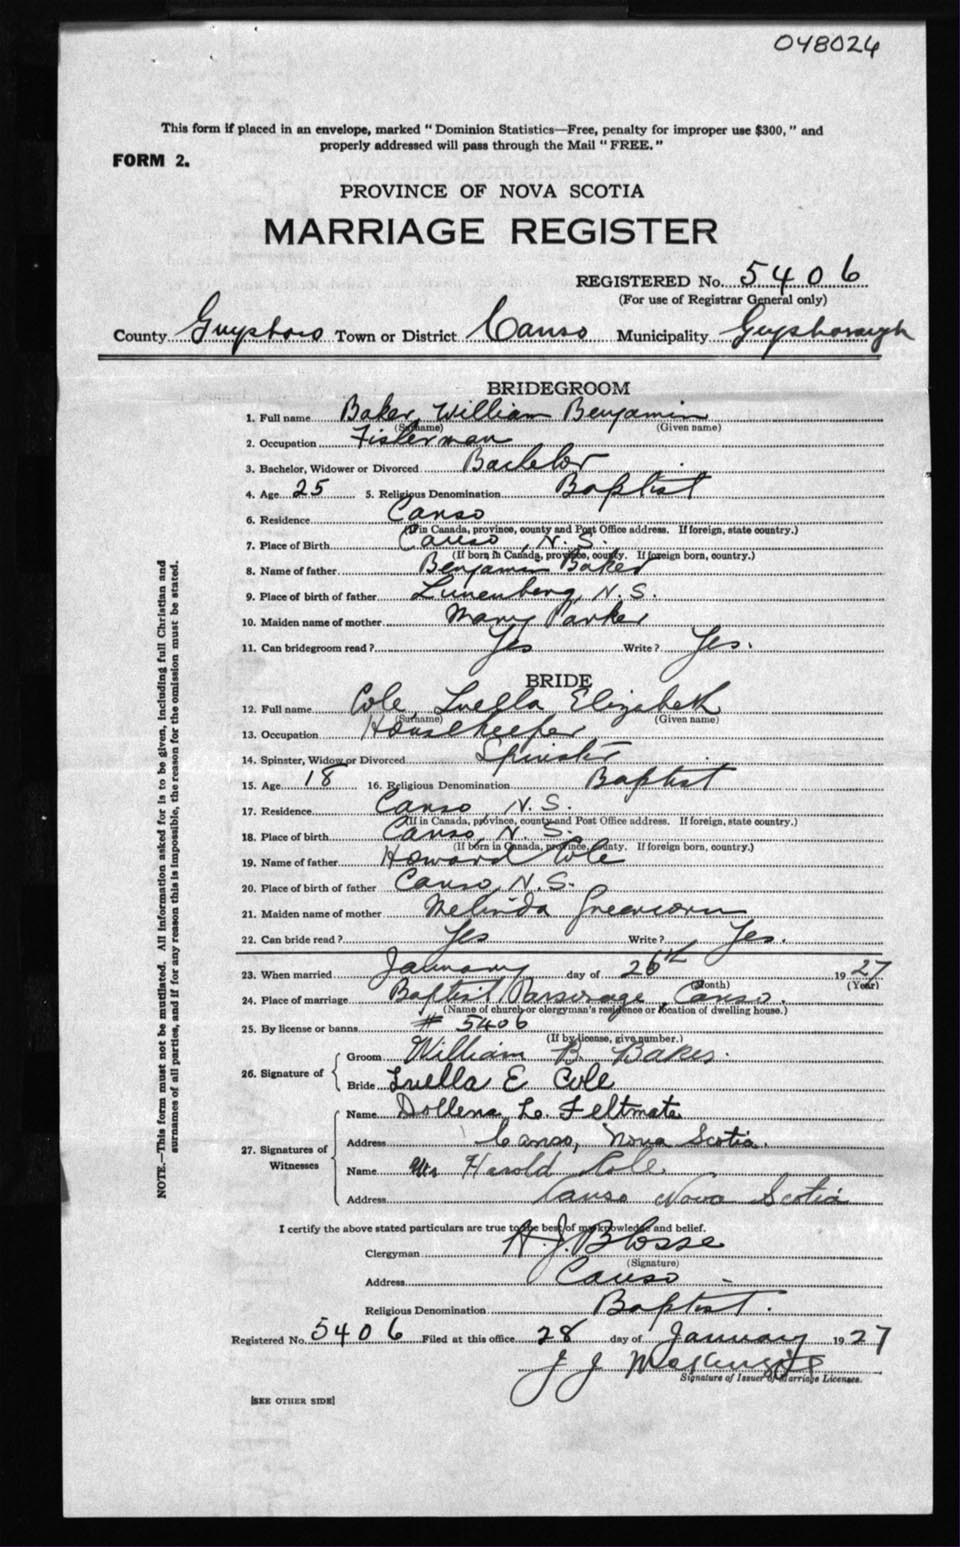 048024
This form if placed in an envelope, marked "Dominion Statistics—Free, penalty for improper use $300," and
properly addressed will pass through the Mail "FREE."
FORM 2.
PROVINCE OF NOVA SCOTIA
MARRIAGE REGISTER
REGISTERED No. 5406
(For use of Registrar General only)
County Guysboro Town or District Canso Municipality Guysborough
BRIDEGROOM
1. Full name Baker, William Benjamin
(Surname) (Given name)
2. Occupation Fisherman
3. Bachelor, Widower or Divorced Bachelor
4. Age 25 5. Religious Denomination Baptist
6. Residence Canso
(If in Canada, province, county and Post Office address. If foreign, state country.)
7. Place of Birth Canso, N.S.
(If born in Canada, province, county. If foreign born, country.)
8. Name of father Benjamin Baker
9. Place of birth of father Lunenberg, N.S.
10. Maiden name of mother Mary Parker
11. Can bridegroom read? Yes Write? Yes.
BRIDE
12. Full name Cole, Luella Elizabeth
(Surname) (Given name)
13. Occupation Housekeeper
14. Spinster, Widow or Divorced Spinster
15. Age 18 16. Religious Denomination Baptist
17. Residence Canso N.S.
(If in Canada, province, county and Post Office address. If foreign, state country.)
18. Place of birth Canso, N.S.
(If born in Canada, province, county. If foreign born, country.)
19. Name of father Howard Cole
20. Place of birth of father Canso, N.S.
21. Maiden name of mother Melinda Greencorn
22. Can bride read? Yes Write? Yes.
23. When married January day of 26th 1927
(Month) (Year)
24. Place of marriage Baptist Parsonage, Canso.
(Name of church or clergyman's residence or location of dwelling house.)
25. By license or banns # 5406
(If by license, give number.)
26. Signature of
Groom William B. Baker.
Bride Luella E Cole
27. Signatures of Witnesses
Name Dollena L. Feltmate
Address Canso, Nova Scotia.
Name Mrs Harold Cole
Address Canso Nova Scotia
I certify the above stated particulars are true to the best of my knowledge and belief.
Clergyman H. J. Blosse
(Signature)
Address Canso -
Religious Denomination Baptist.
Registered No. 5406 Filed at this office 28 day of January 1927
J J McKenzie
Signature of Issuer of Marriage Licenses.
[SEE OTHER SIDE]
NOTE.—This form must not be mutilated. All information asked for is to be given, including full Christian and
surnames of all parties, and if for any reason this is impossible, the reason for the omission must be stated.